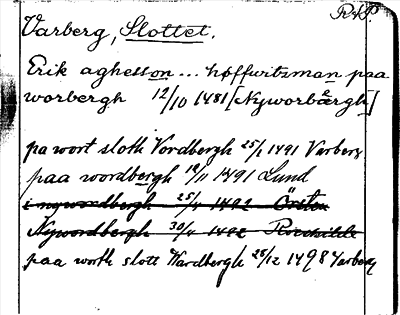 R&P.
Varberg, Slottet.
Erik aghesson ... høffuitzman paa
worbergh 12/10 1481 [Nyworbærgh]
pa wort sloth Vordbergh 25/1 1491 Varberg
paa woordbergh 18/11 1491 Lund
i nywordbergh 25/4 1492 Örsten
Nywordbergh 30/4 1492 Roeskilde
paa worth slott Wardbergh 28/12 1498 Varberg